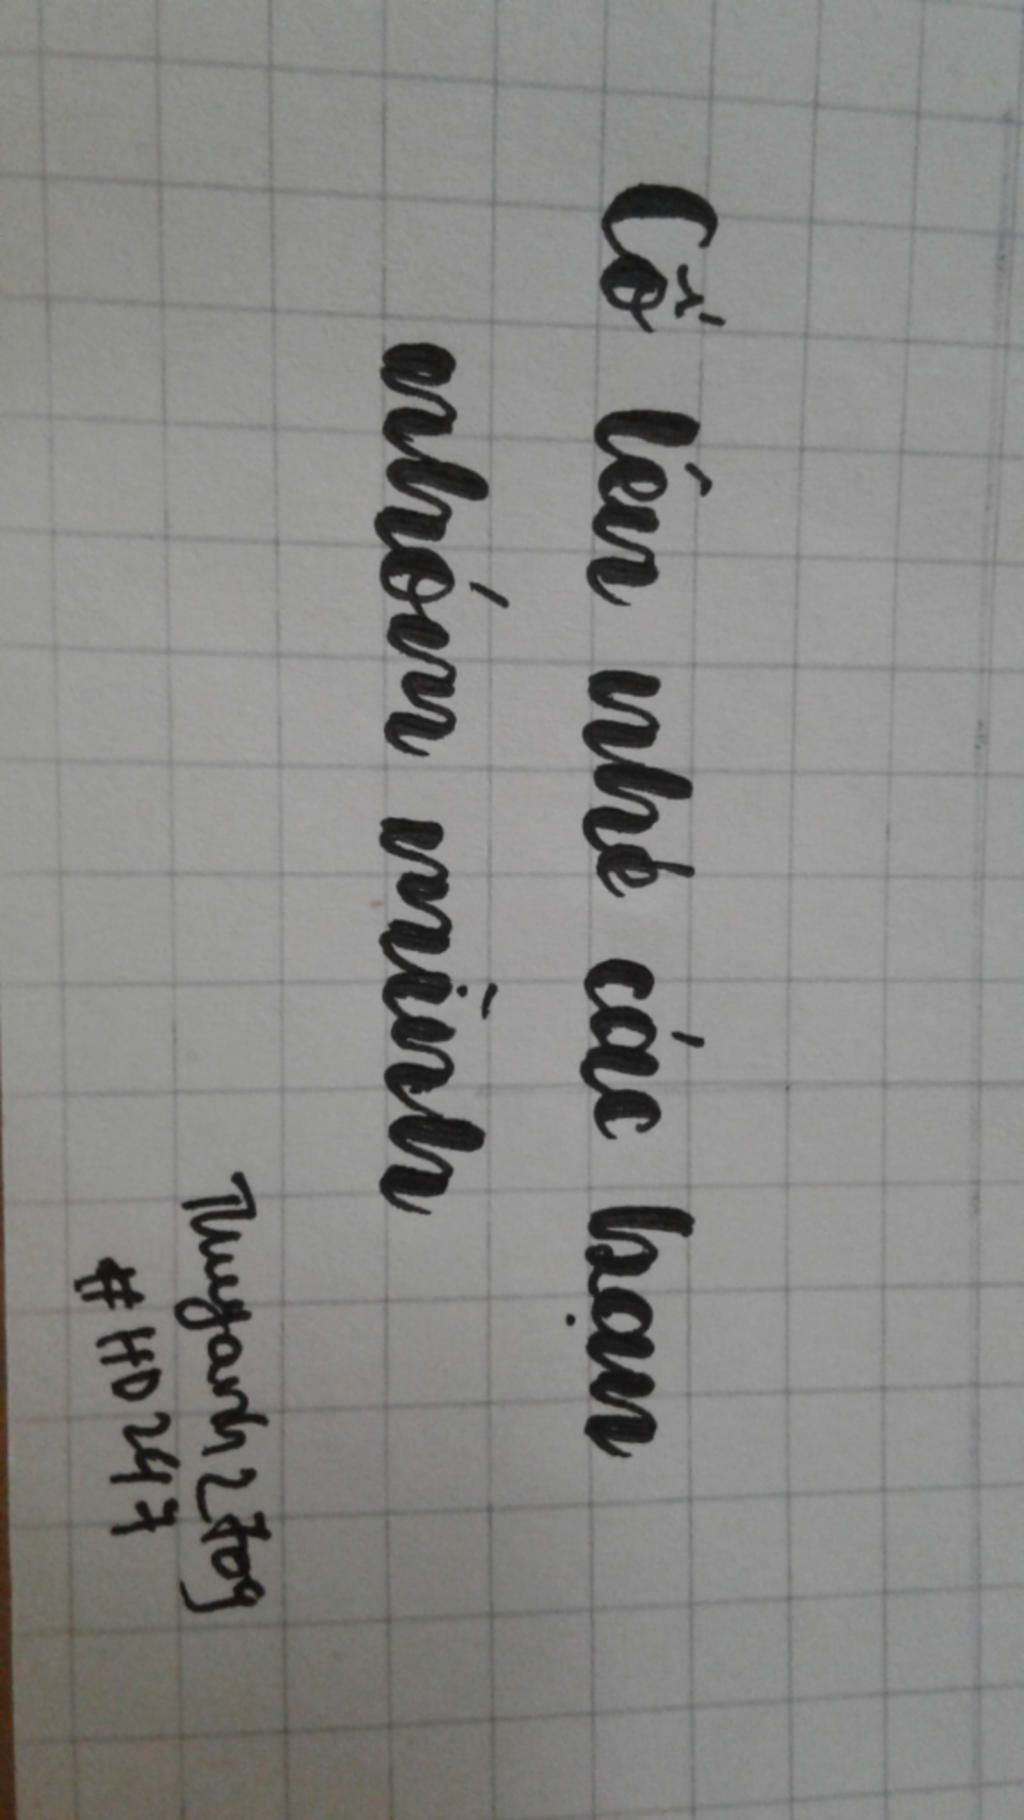 Cố lên nhé các bạn
nhóm mình
Thuyanh2709
#HD247